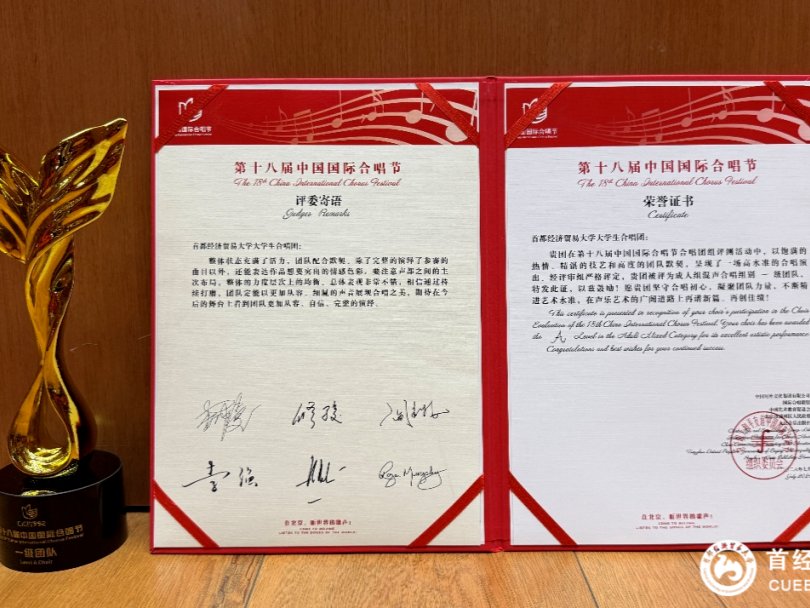 国际合唱节
第十八届中国国际合唱节
The 18th China International Chorus Festival
评委寄语
Judges Remarks
首都经济贸易大学大学生合唱团：
整体状态充满了活力，团队配合默契，除了完整的演绎了参赛的
曲目以外，还能表达作品想要突向的情感色彩，要注意声部之间的主
次布局，整体的力度层次上的均衡，总体表现非常不错，相信通过持
续打磨，团队定能以更加从容、细腻的声音展现合唱之美，期待在今
后的舞台上看到团队更加从容、自信、完整的演绎。
李强
在北京，听世界的歌声！
COME TO BEIJING
LISTEN TO THE SONGS OF THE WORLD!
国际合唱节
第十八届中国国际合唱节
The 18th China International Chorus Festival
荣誉证书
Certificate
首都经济贸易大学大学生合唱团：
贵团在第十八届中国国际合唱节合唱团组评测活动中，以饱满的
热情、精湛的技艺和高度的团队默契，呈现了一场高水准的合唱演
出，经评审组严格评定，贵团被评为成人组混声合唱组别 一 级团队。
特发此证，以兹鼓励！愿贵团坚守合唱初心，凝聚团队力量，不断精
进艺术水准，在声乐艺术的广阔道路上再谱新篇，再创佳绩！
This certificate is presented in recognition of your choir's participation in the Choir
Evaluation of the 18th China International Chorus Festival. Your choir has been awarded
the A Level in the Adult Mixed Category for its excellent artistic performance
Congratulations and best wishes for your continued success.
组织委员会
在北京，听世界的歌声！
COME TO BEIJING
LISTEN TO THE SONGS OF THE WORLD!
十八届中国国际合唱节
一级团队
Level A Choir
首经
CUEB